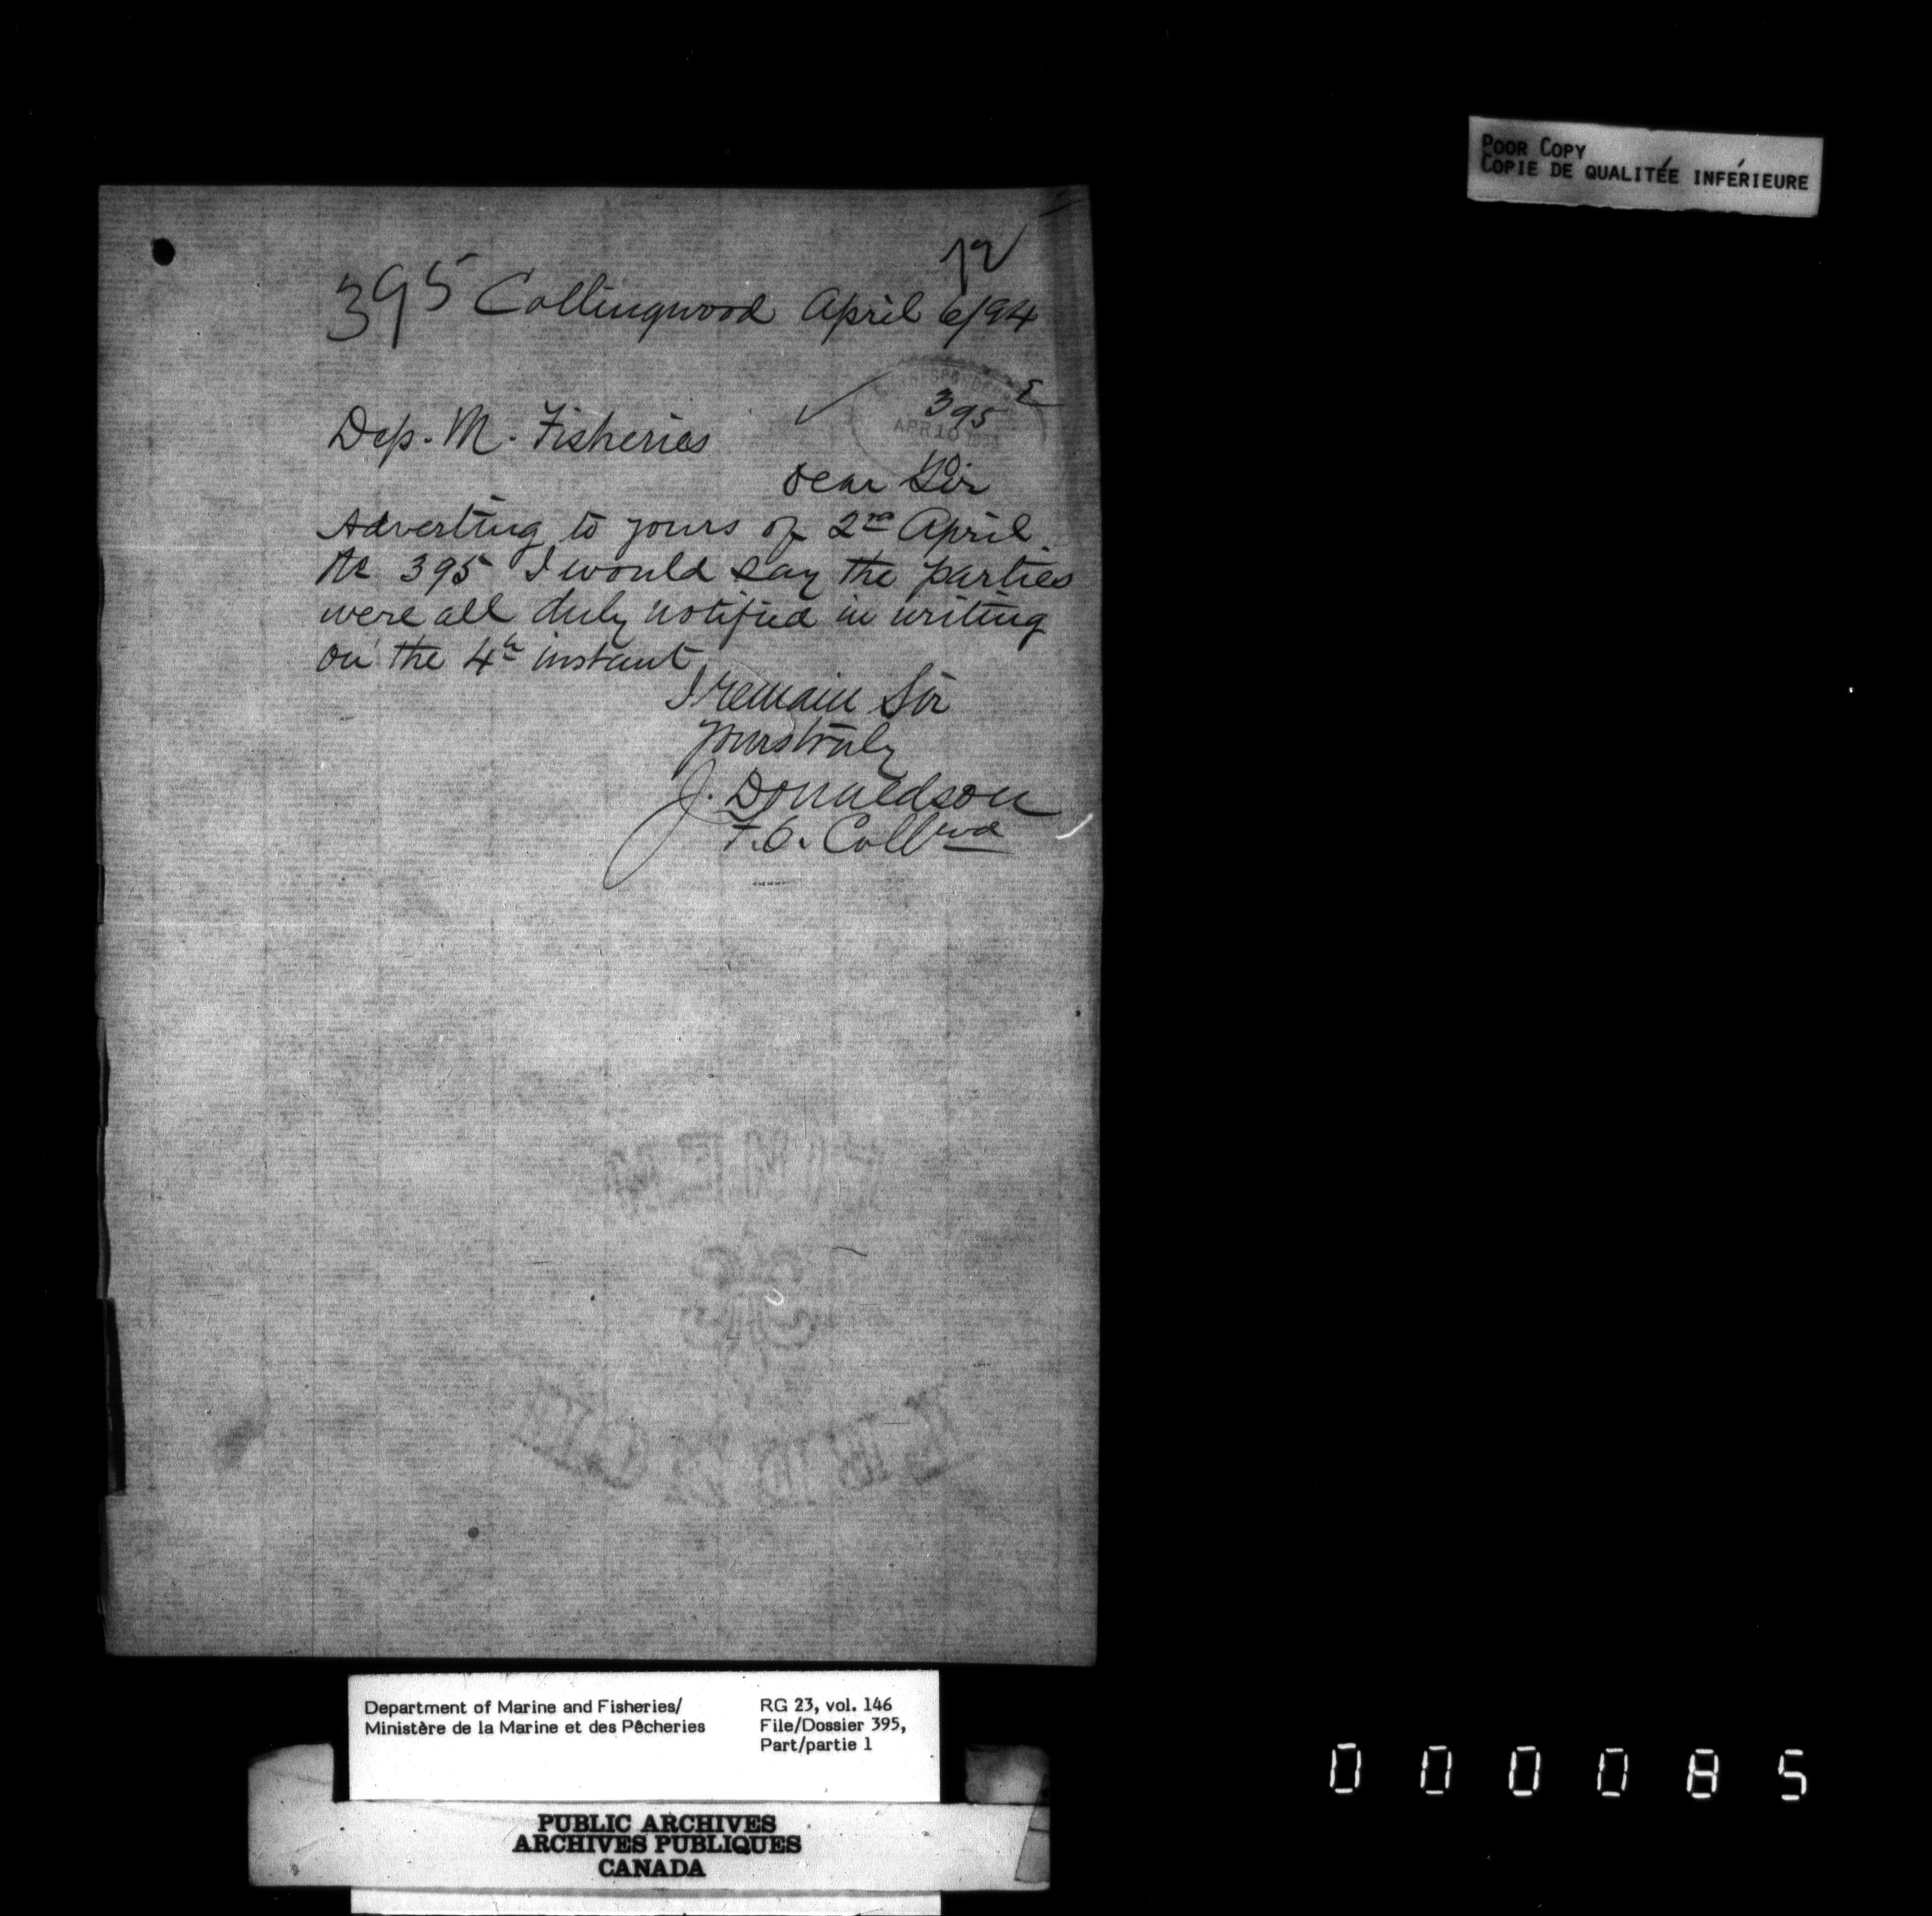 POOR COPY
COPIE DE QUALITÉE INFÉRIEURE
12
395 Collingwood April 6/94
395
APR 10
Dep. M. Fisheries
Dear Sir
Adverting to yours of 2nd April
No 395 I would say the parties
were all duly notified in writing
on the 4th instant
I remain Sir
Yours truly
J. Donaldson
F.O. Collwd
Department of Marine and Fisheries/
Ministère de la Marine et des Pêcheries
RG 23, vol. 146
File/Dossier 395,
Part/partie 1
PUBLIC ARCHIVES
ARCHIVES PUBLIQUES
CANADA
000085